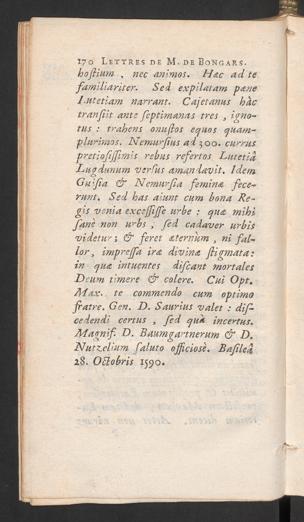 170 LETTRES DE M. DE BONGARS.
hostium, nec animos. Hæc ad te
familiariter. Sed expilatam pæne
Lutetiam narrant. Cajetanus hàc
transiit ante septimanas tres, igno-
tus: trahens onustos equos quam-
plurimos. Nemursius ad 300. currus
pretiosissimis rebus refertos Lutetiâ
Lugdunum versus amandavit. Idem
Guisia & Nemursa feminæ fece-
runt. Sed has aiunt cum bona Re-
gis venia excessisse urbe: quæ mihi
sanè non urbs, sed cadaver urbis
videtur; & feret æternùm, ni fal-
lor, impressa iræ divinæ stigmata:
in quæ intuentes discant mortales
Deum timere & colere. Cui Opt.
Max. te commendo cum optimo
fratre. Gen. D. Saurius valet: dis-
cedendi certus, sed quà incertus.
Magnif. D. Baumgartnerum & D.
Nutzelium saluto officiosè. Basileâ
28. Octobris 1590.